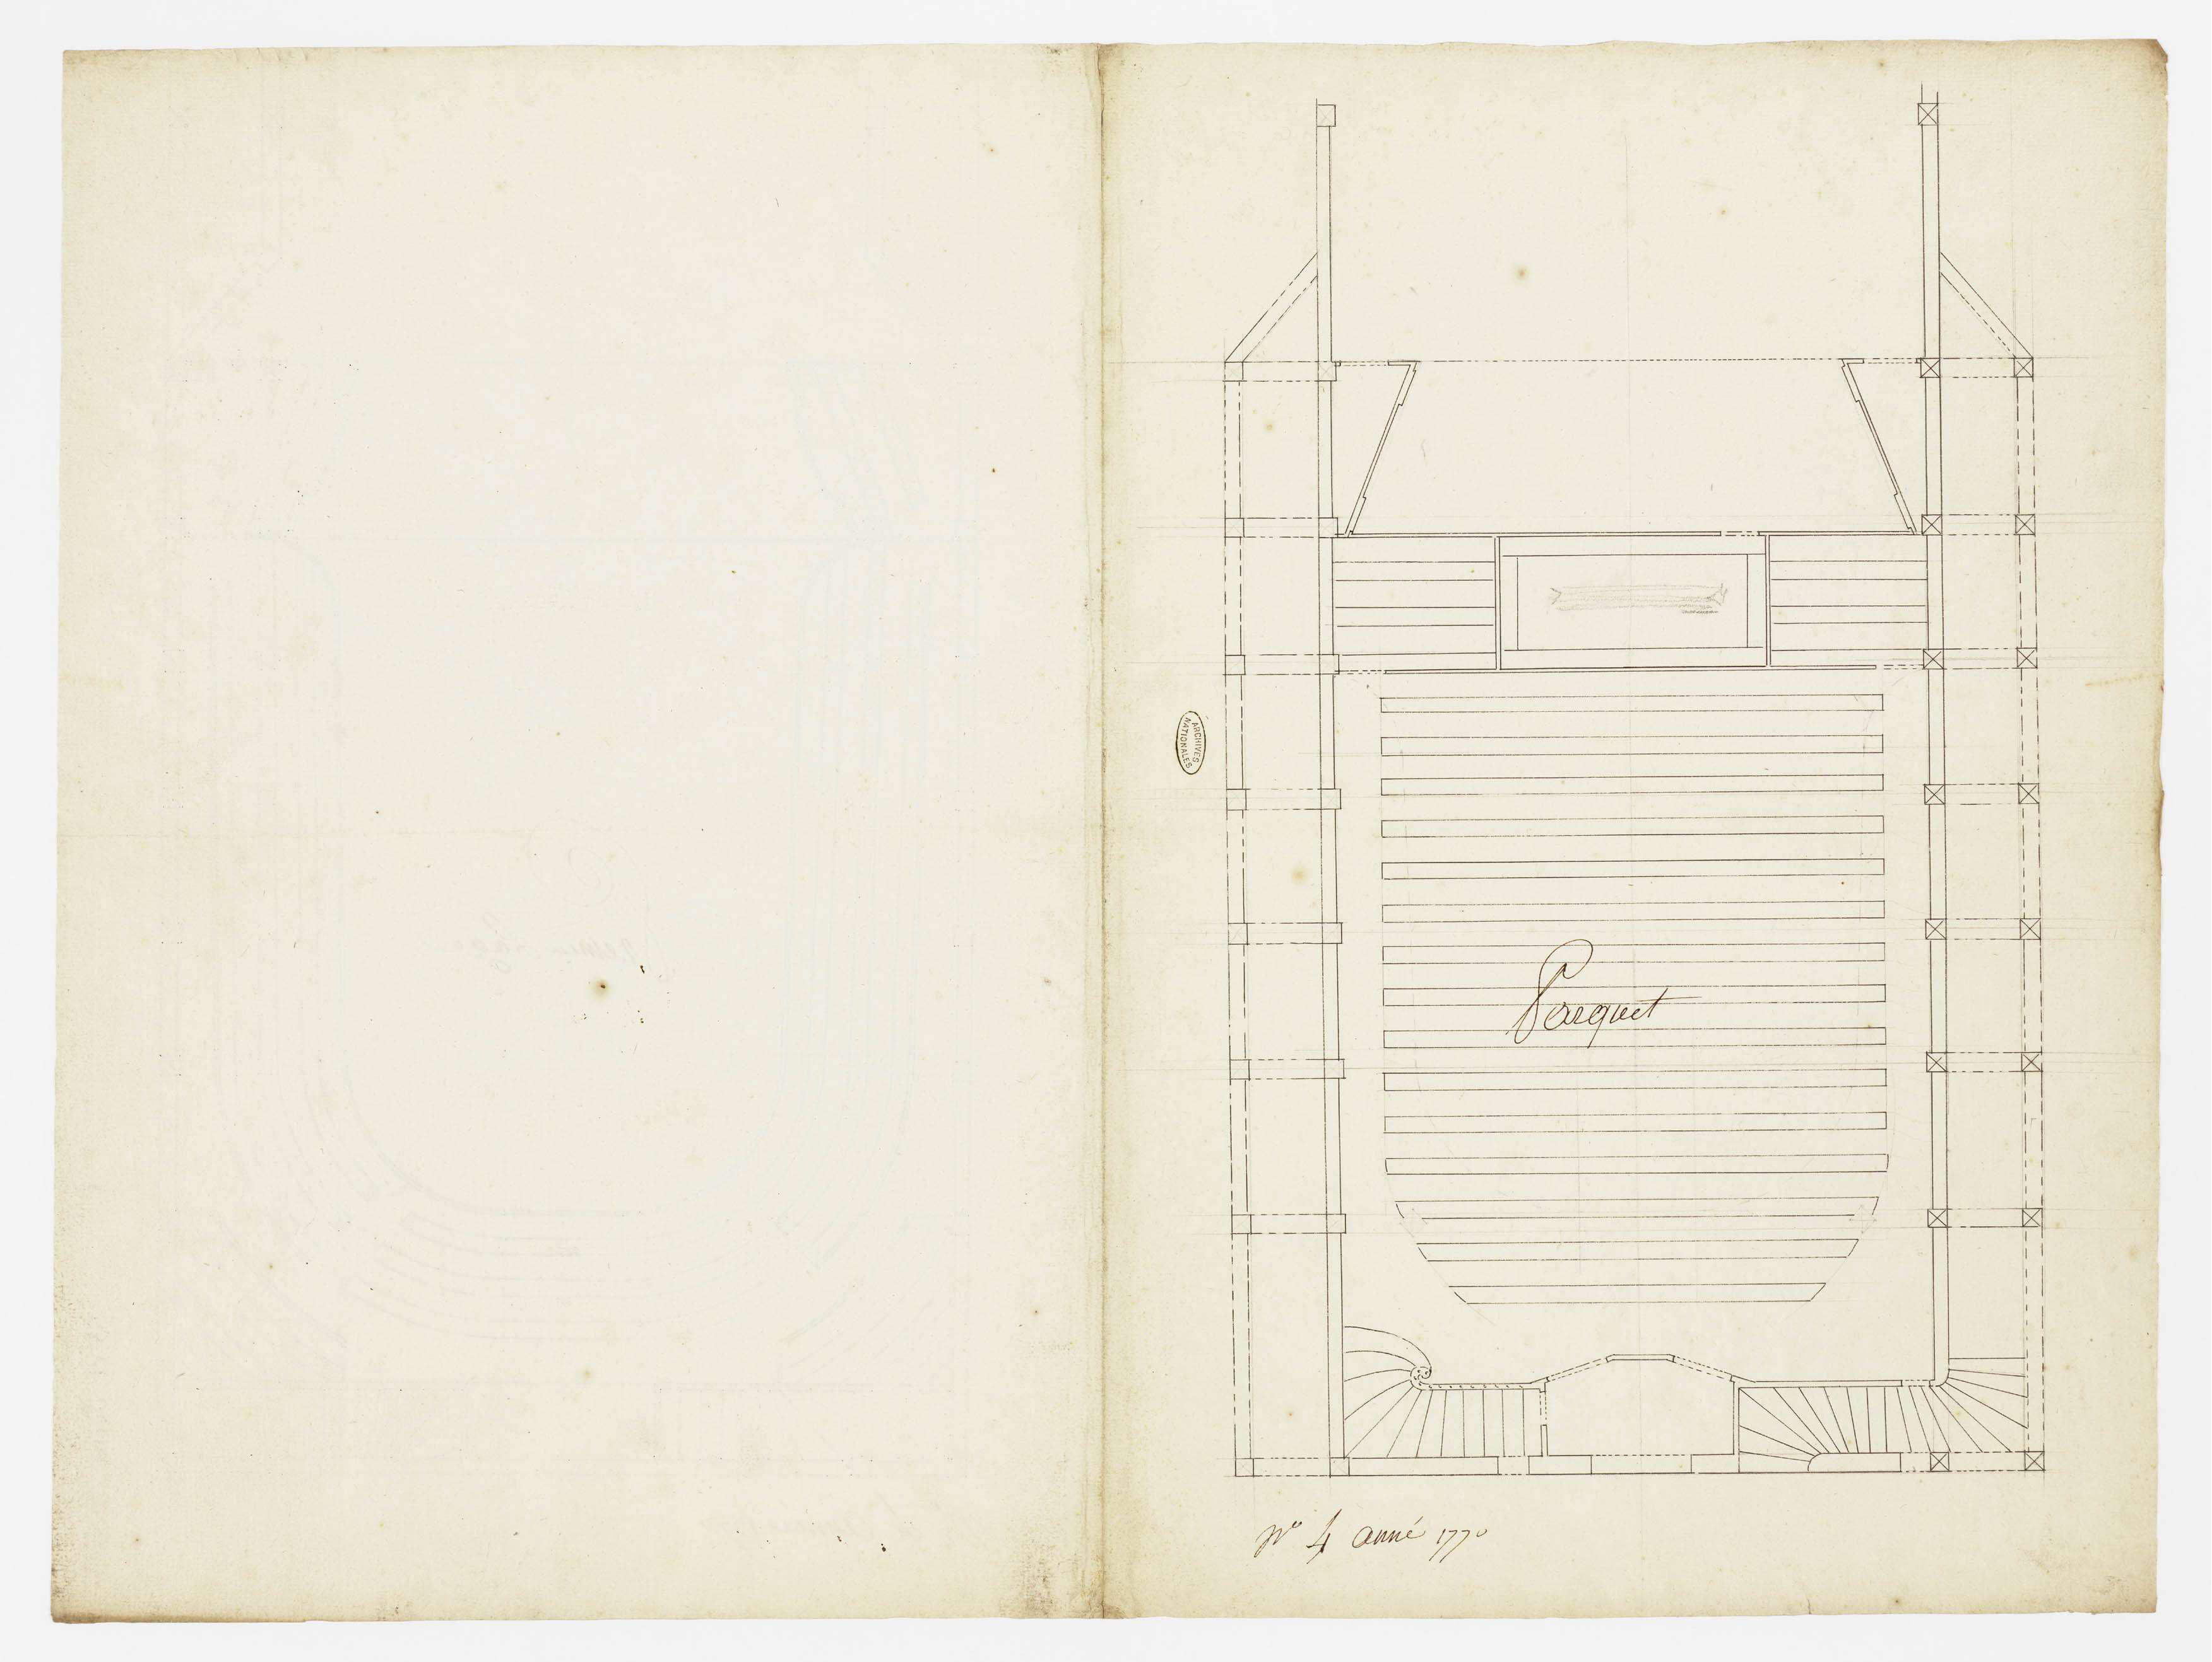 ARCHIVES
NATIONALES
Parquet
Nº 4 anné 1770